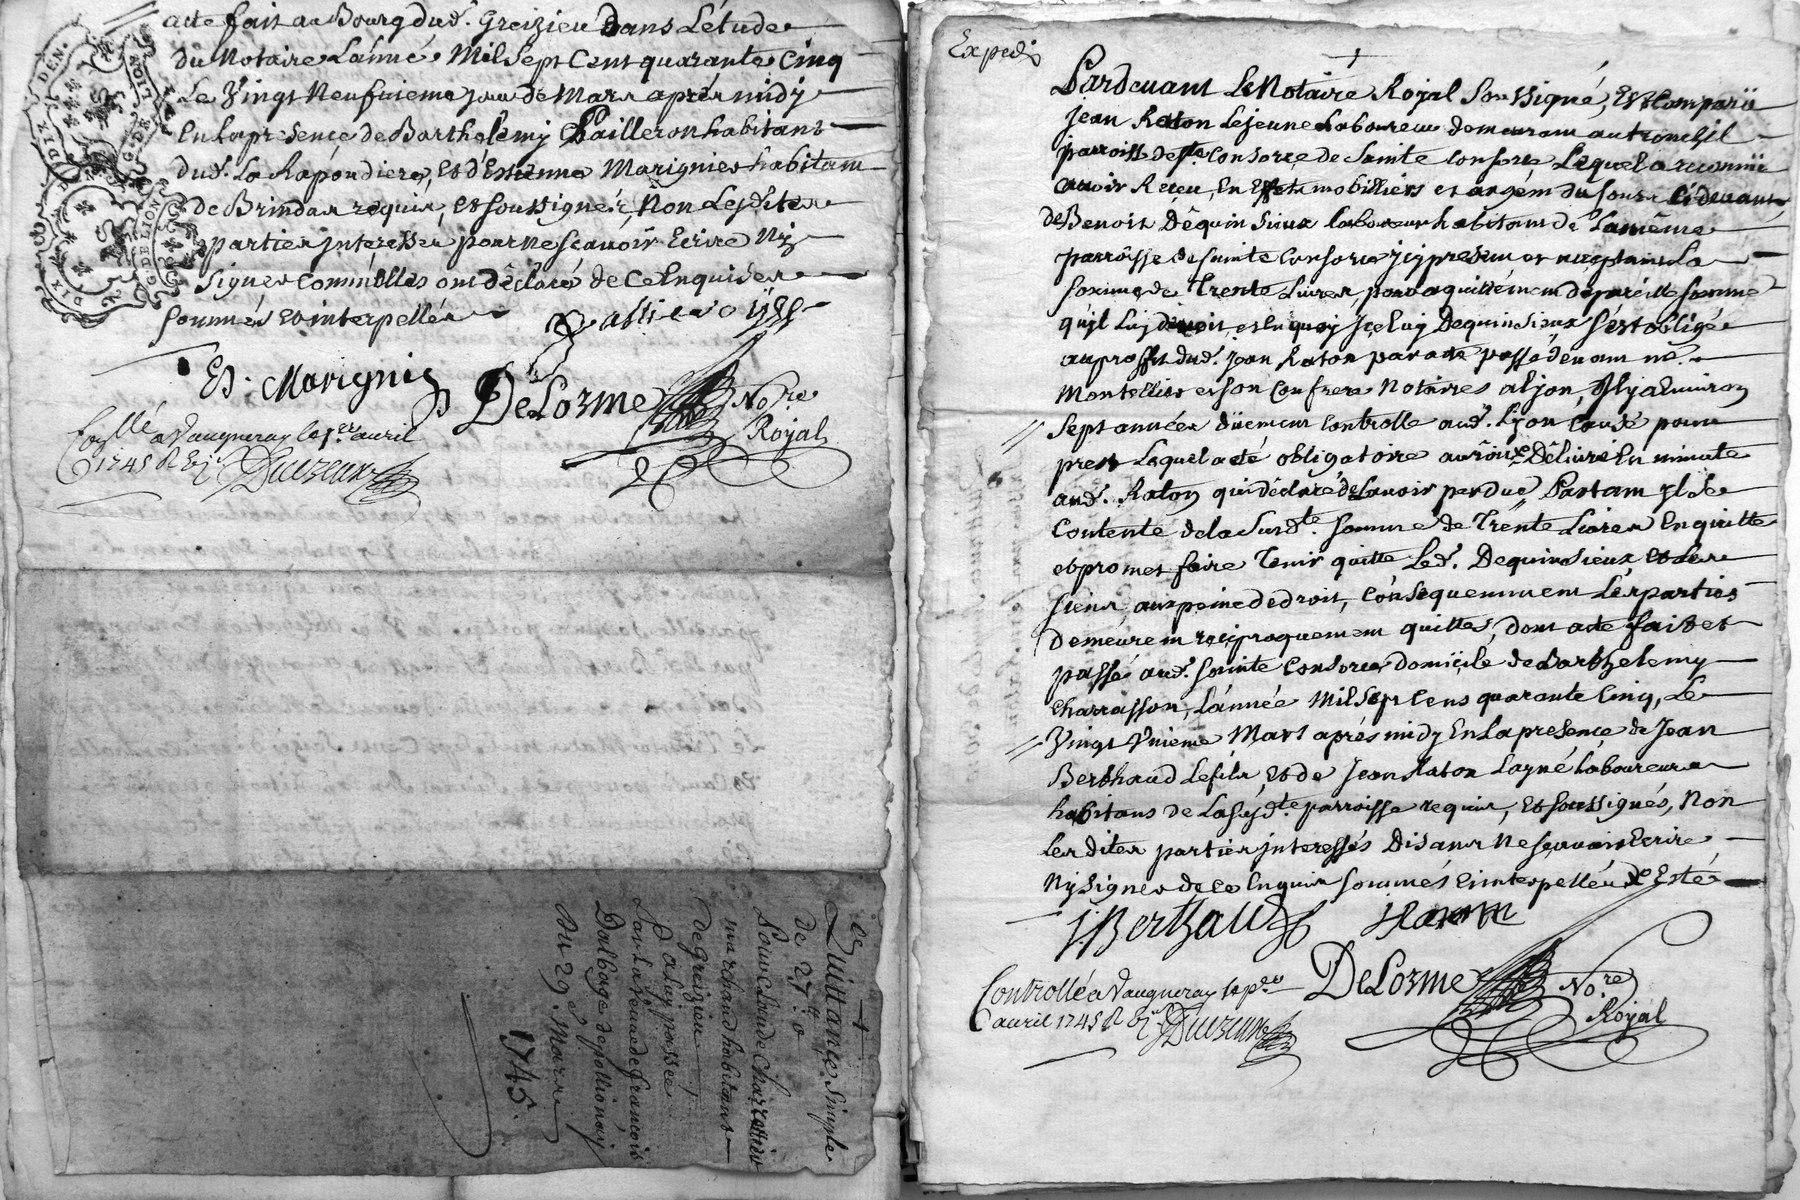 acte fait au Bourg dud. Greizieu Dans L'étude
du Notaire L'année Mil Sept Cent quarante Cinq
Le Vingt Neufvieme jour de Mars aprés midy
En La presence de Barthelemy Chailleron habitant
dud. La Rapondiere, Et d'Estienne Marignier habitant
de Brindas requis, et soussignés, Non Lesdites
parties interessés pour ne scavoir Ecrire Ny
Signer Comm'elles ont déclaré de Ce Enquises
Sommés et interpellés
Et. Marignier
DeLorme No.re
Royal
Con.llé a Vaugneray le 1.er avril
1745 R
EXTRAORD. DIX DEN.
G. DE LION
Quittance Simple
de 27.tt 0
pour Claude
marchand habitant
de Greizieu
a luy passée
Par La veuve de françois
Dalbage de pollionay
Du 29.e Mars
1745.
Expedié
Pardevant Le Notaire Royal Soussigné, Est Comparu
Jean Raton Lejeune Laboureur demeurant au tronchil
parroisse de Ste Consorce de Sainte Consorce Lequel a reconnu
avoir Receu, En Effets mobilliers et argent du jour Cidevant
de Benoit Dêquinsieux laboureur habitant de Lamême
parroisse de Sainte Consorce jcy present et acceptant La
somme de Trente Livres, pour aquittement de pareille somme
qu'jl Luy devoit, et En quoy Jceluy Dequinsieux s'est obligé
au proffit dud. jean Raton par acte passé devant me.
Montellier et son Confrere Notaires a Lyon, Jl y a Environ
Sept années düement Controllé aud. Lyon Causé pour
prest Lequel acte obligatoire auroit été Délivré En minute
aud. Raton qui déclare de Lavoir perdue Partant jl Se
Contente de la Susd.te somme de Trente Livres En quitte
et promet faire Tenir quitte Led. Dequinsieux et Les
siens, aux peine de droit, Conséquemment Les parties
demeurent réciproquement quittes, dont acte fait et
passé aud. Sainte Consorce, domicile de Barthelemy
Charrasson, L'année Mil Sept Cent quarante Cinq, Le
Vingt Vnieme Mars aprés midy En La presence de Jean
Berthaud Lefils, Et de Jean Raton Layné Laboureurs
habitans de Lasusd.te parroisse requis, Et soussignés, Non
Les dites parties jnteressés Disant Ne scavoir Ecrire
Ny Signer de Ce Enquis sommés Et interpellés de Esté
J. Berthaud
J Raton
DeLorme No.re
Royal
Controllé a Vaugneray le p.er
avril 1745 R